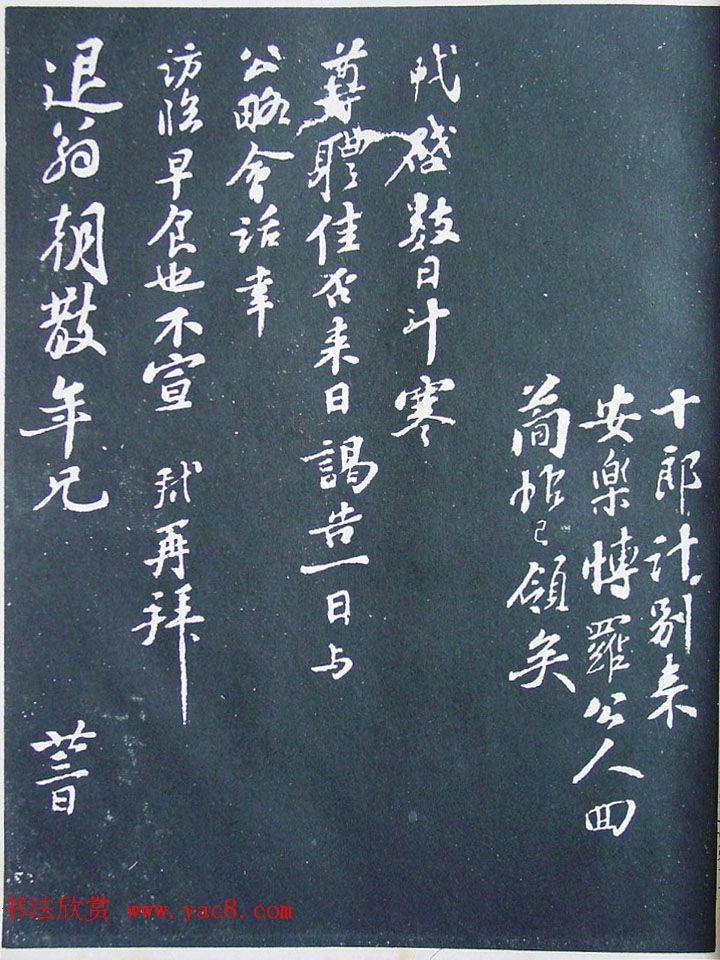 十郎計別来
安樂博羅公人回
簡帖已領矣
軾啓數日斗寒
尊體佳否来日謁告一日与
公略會話幸
訪臨早食也不宣 軾再拜
退翁朝散年兄
廿三日
书法欣赏 www.yac8.com